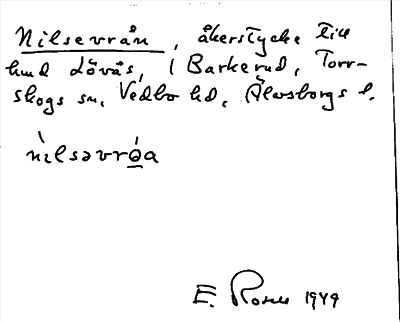 Nilsevrån, åkerstycke till
hmd Lövås, i Barkerud, Torr-
skogs sn, Vedbo hd, Älvsborgs l.
nìlsəvrò̲a
E. Rosell 1949